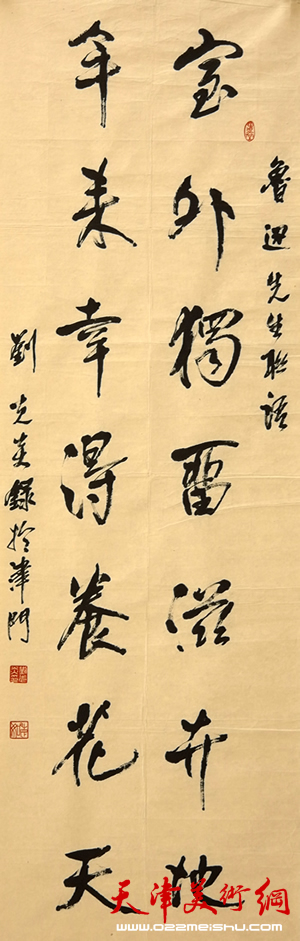 魯迅先生联語
室外獨留滋卉地
年来幸得養花天
劉光炎録於津門
天津美術網
www.022meishu.com